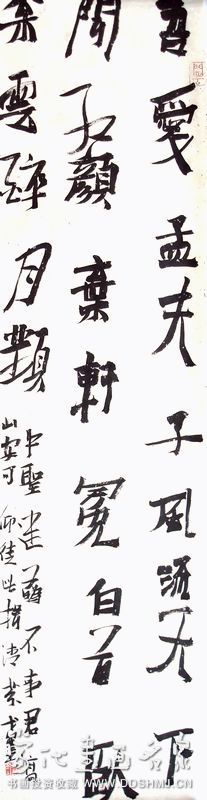 吾愛孟夫子風流天下
聞紅顏棄軒冕白首臥
松雲醉月頻
中聖迷花不事君高
山安可仰徒此揖清芬
当代书画名家
书画投资收藏 WWW.DDSHMJ.CN